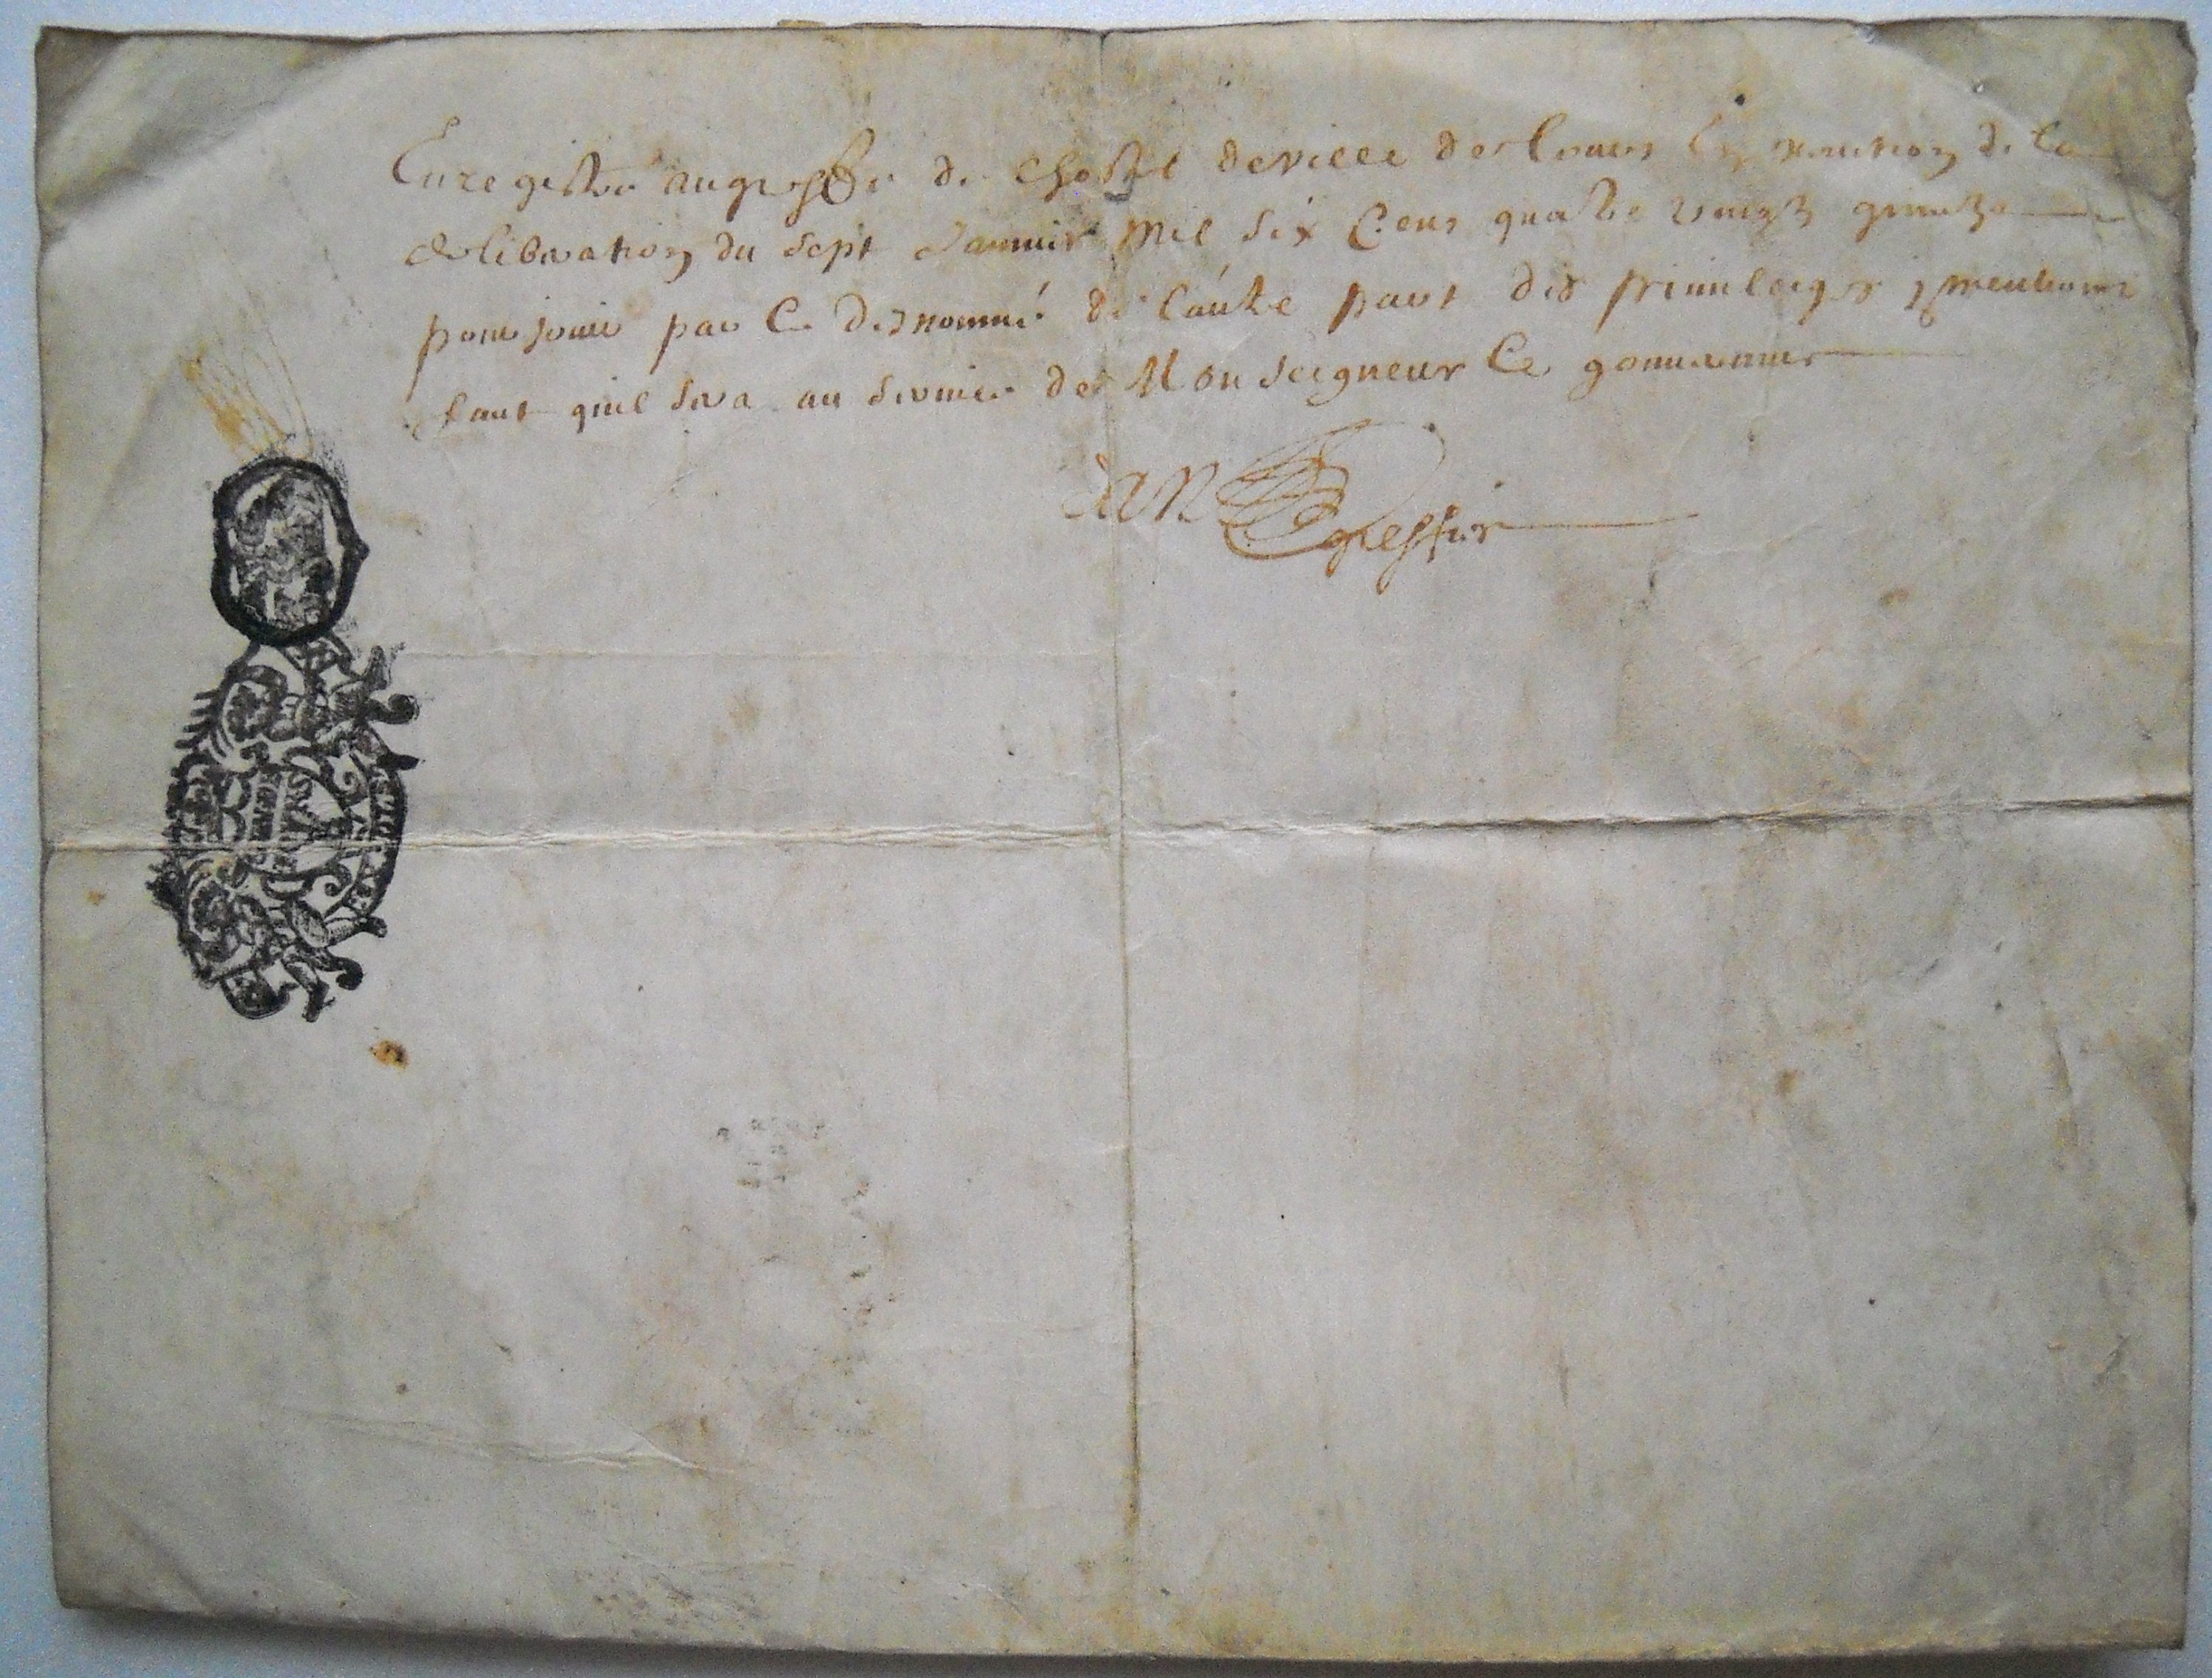 Enregistré au greffe de Lhostel de ville de Tours En execution de la
deliberation du sept Januier Mil Six Cens quatre vingt quinze
pour jouir par Le desnommé de l'autre part des priuileges y mentionnes
tant quil sera au seruice de Monseigneur Le gouuerneur
greffier